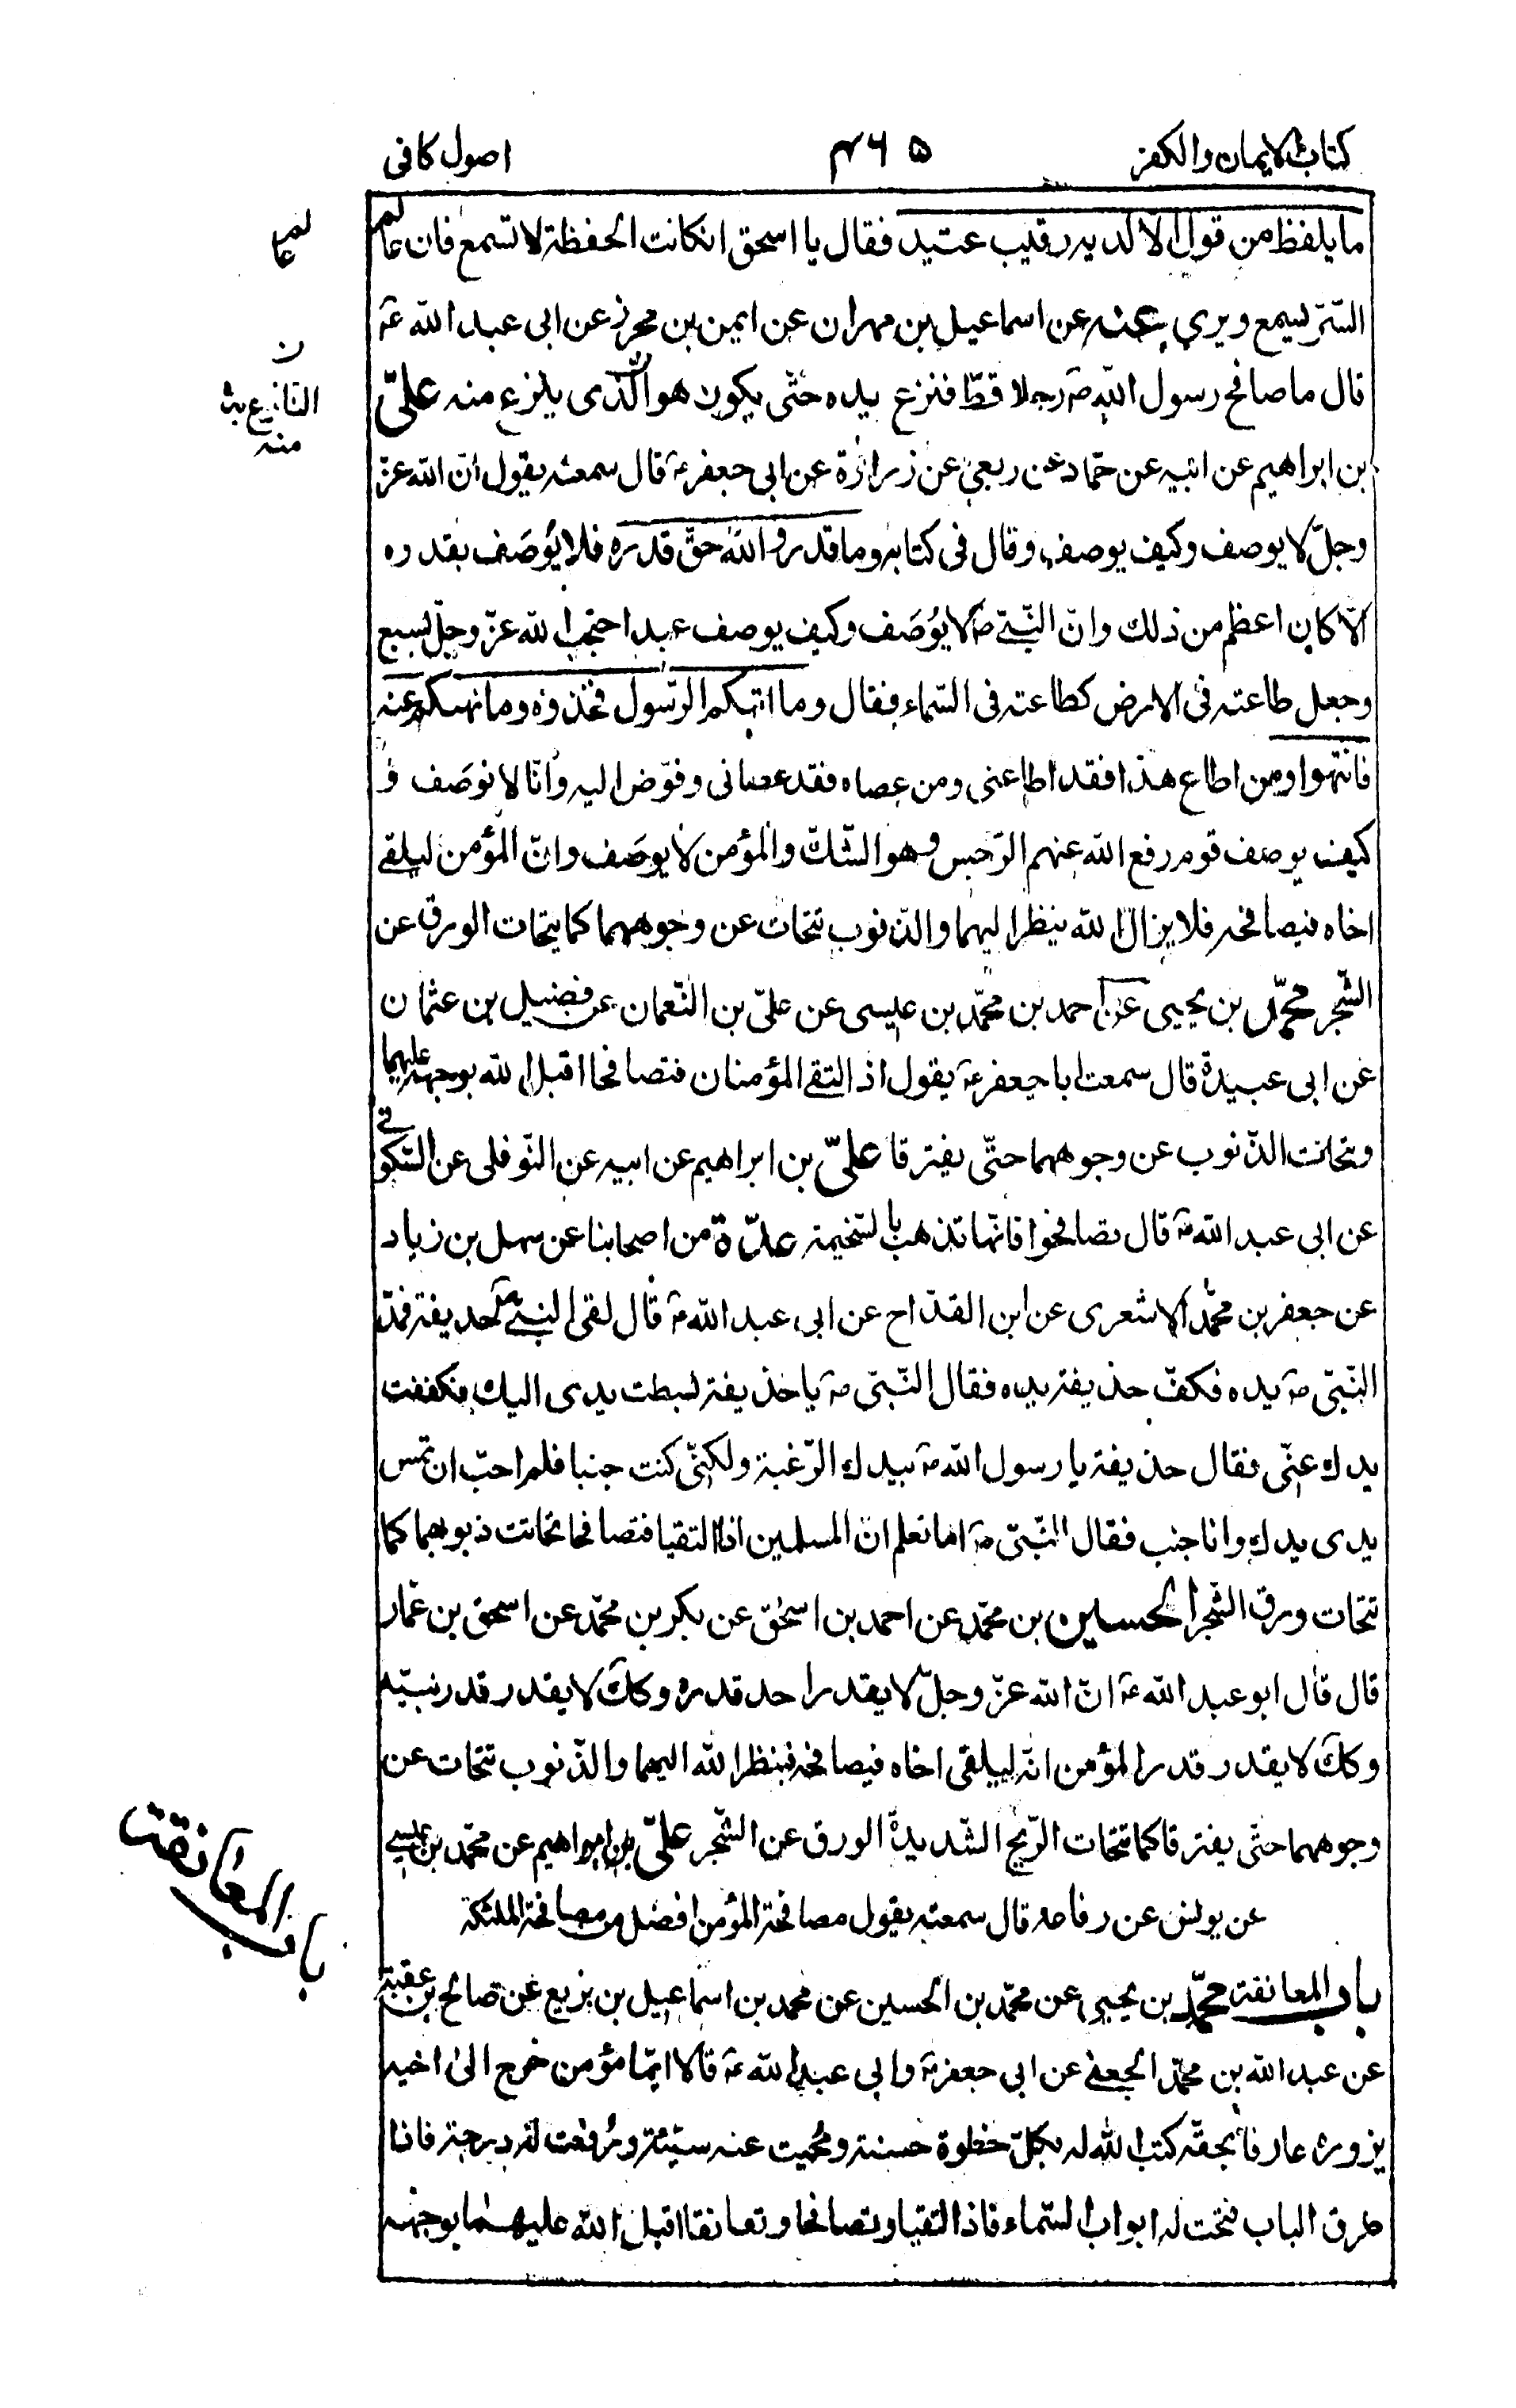 كتاب الايمان والكفر ٤٦٥ اصول كافى
ما يلفظ من قول الا لديه رقيب عتيد فقال يا اسحق ان كانت الحفظة لا تسمع فان عالم
السّرّ يسمع ويرى عنه عن اسماعيل بن مهران عن ايمن بن محرز عن ابى عبد الله ع
قال ما صافح رسول الله ص رجلا قطّ فنزع يده حتّى يكون هو الّذى ينزع منه علىّ
بن ابراهيم عن ابيه عن حمّاد عن ربعى عن زرارة عن ابى جعفر ع قال سمعته يقول انّ الله عزّ
وجلّ لا يوصف وكيف يوصف وقال فى كتابه وما قدروا الله حقّ قدره فلا يُوصَف بقدره
الّا كان اعظم من ذلك وانّ النّبىّ ص لا يُوصَف وكيف يوصف عبد احتجب الله عزّ وجلّ بسبع
وجعل طاعته فى الارض كطاعته فى السّماء فقال وما اتيكم الرّسول فخذوه وما نهيكم عنه
فانتهوا ومن اطاع هذا فقد اطاعنى ومن عصاه فقد عصانى وفوّض اليه وانّا لا نوصَف و
كيف يوصف قوم رفع الله عنهم الرّجس وهو الشّك والمؤمن لا يوصَف وانّ المؤمن ليلقى
اخاه فيصافحه فلا يزال الله ينظر اليهما والذّنوب تتحات عن وجوههما كما يتحات الورق عن
الشّجر محمّد بن يحيى عن احمد بن محمّد بن عيسى عن علىّ بن النّعمان عن فضيل بن عثمان
عن ابى عبيدة قال سمعت ابا جعفر ع يقول اذا التقى المؤمنان فتصافحا اقبل الله بوجهه عليهما
وتحاتت الذّنوب عن وجوههما حتّى يفترقا علىّ بن ابراهيم عن ابيه عن النّوفلى عن السّكونى
عن ابى عبد الله ع قال تصافحوا فانّها تذهب بالسّخيمة عدّة من اصحابنا عن سهل بن زياد
عن جعفر بن محمّد الاشعرى عن ابن القدّاح عن ابى عبد الله ع قال لقى النبىّ ص حذيفة فمدّ
النّبىّ ص يده فكفّ حذيفة يده فقال النّبىّ ص يا حذيفة بسطت يدى اليك فكففت
يدك عنّى فقال حذيفة يا رسول الله ص بيدك الرّغبة ولكنّى كنت جنبا فلم احبّ ان تمس
يدى يدك وانا جنب فقال النّبىّ ص اما تعلم انّ المسلمين اذا التقيا فتصافحا تحاتت ذنوبهما كما
تتحات ورق الشّجر الحسين بن محمّد عن احمد بن اسحق عن بكر بن محمّد عن اسحق بن عمّار
قال قال ابو عبد الله ع انّ الله عزّ وجلّ لا يقدر احد قدره وكك لا يقدر قدر نبيّه
وكك لا يقدر قدر المؤمن انّه ليلقى اخاه فيصافحه فينظر الله اليهما والذّنوب تتحات عن
وجوههما حتّى يفترقا كما تتحات الرّيح الشّديدة الورق عن الشّجر علىّ بن ابراهيم عن محمّد بن عيسى
عن يونس عن رفاعه قال سمعته يقول مصافحة المؤمن افضل من مصافحة الملئكة
باب المعانقة محمّد بن يحيى عن محمّد بن الحسين عن محمد بن اسماعيل بن بزيع عن صالح بن عقبة
عن عبد الله بن محمّد الجعفى عن ابى جعفر ع وابى عبد الله ع قالا ايّما مؤمن خرج الى اخيه
يزوره عارفا بحقّه كتب الله له بكلّ خطوة حسنة ومُحيت عنه سيّئة ورُفعت له درجة فاذا
طرق الباب فتحت له ابواب السّماء فاذا التقيا وتصافحا وتعانقا اقبل الله عليهما بوجهه
عالم
ن
النازع
منه
باب المعانقة